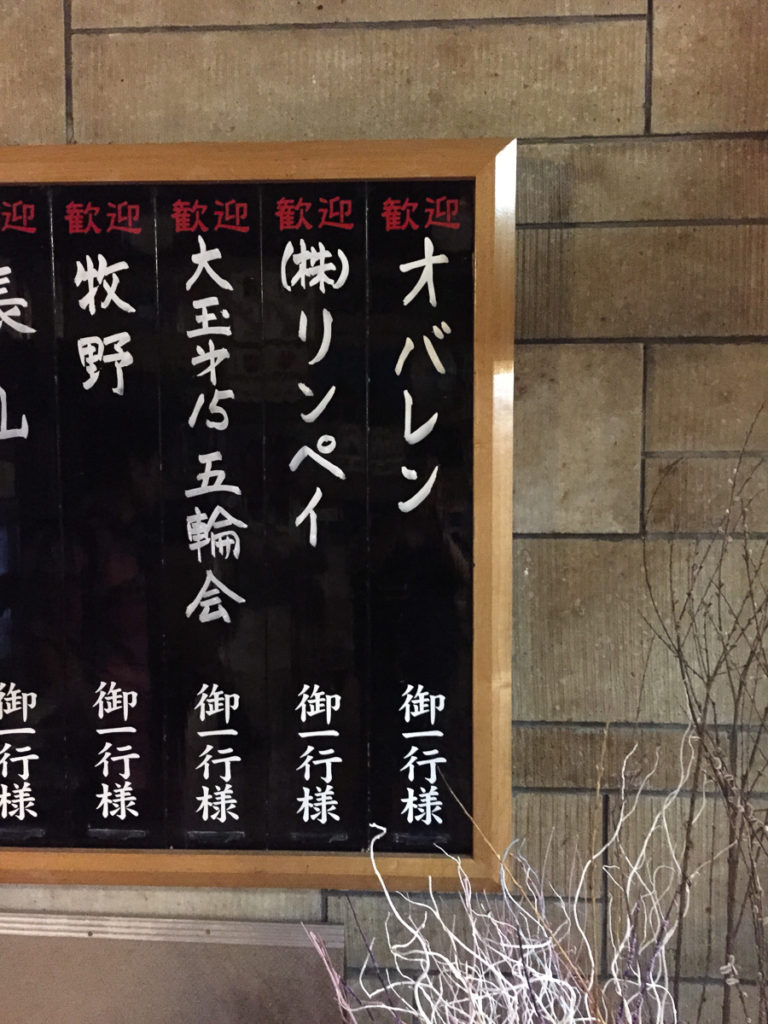 歓迎 オバレン 御一行様
歓迎 (株)リンペイ 御一行様
歓迎 大玉才15五輪会 御一行様
歓迎 牧野 御一行様
迎 御一行様